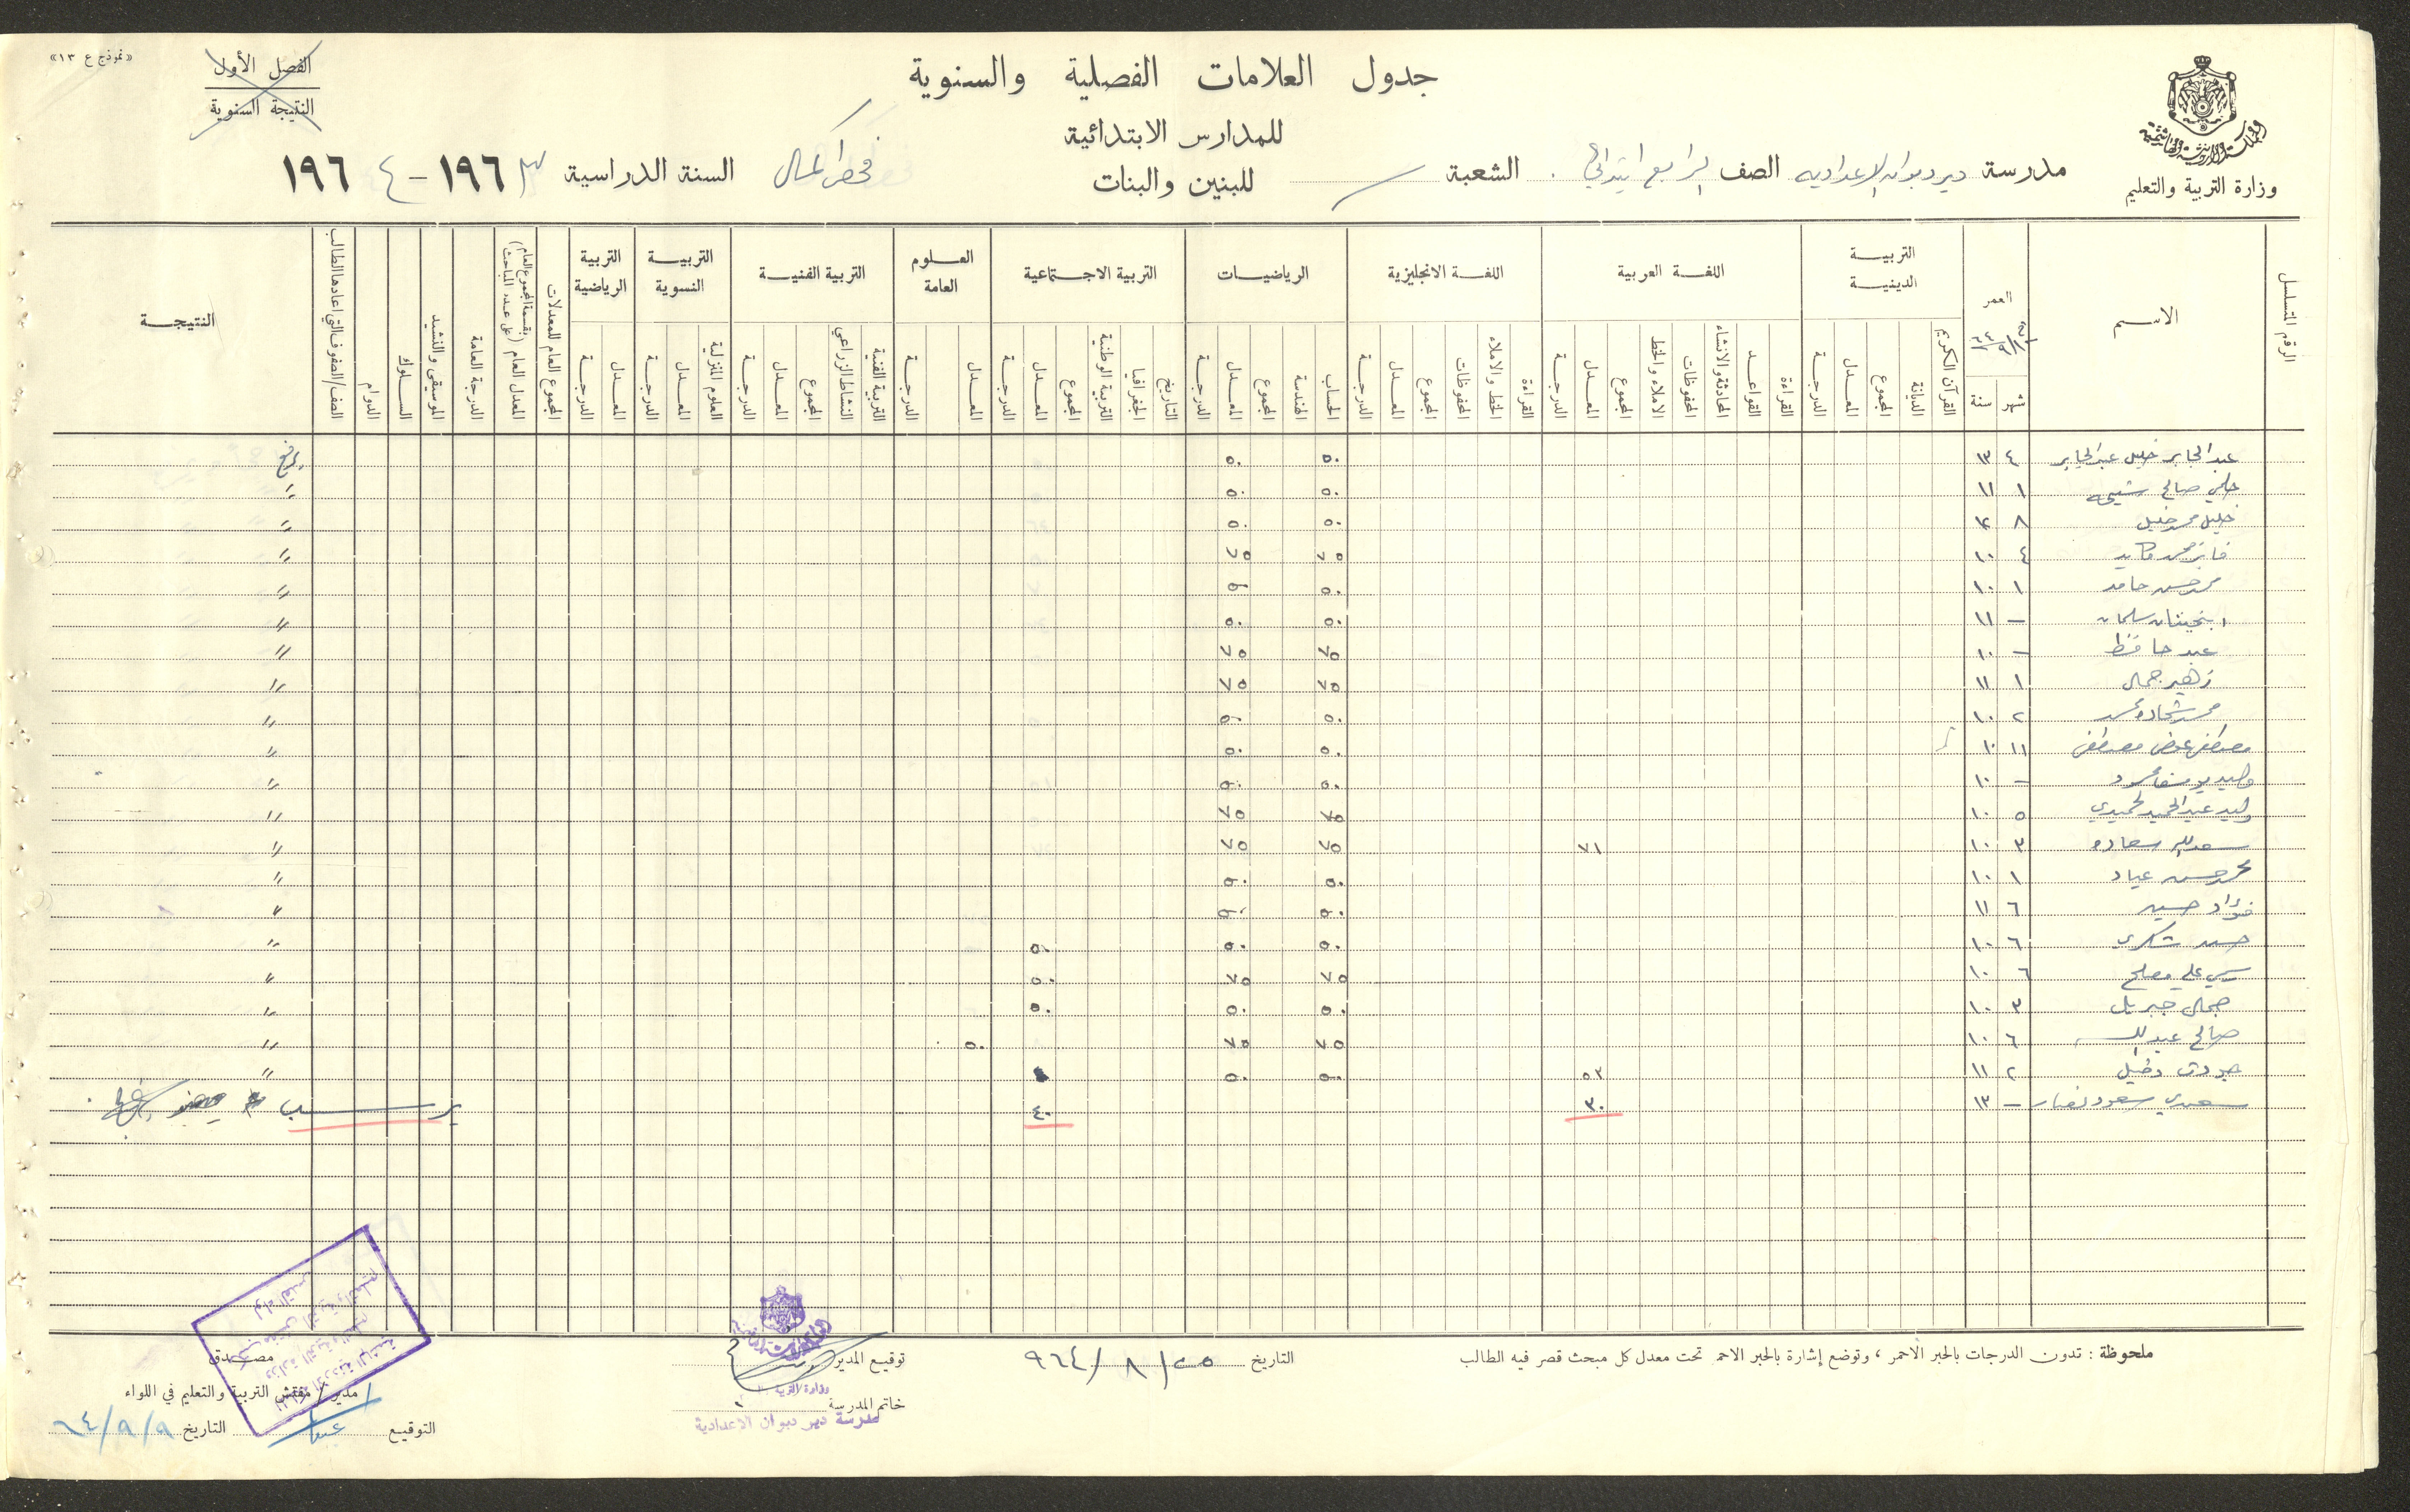 «نموذج ع ١٣»
الفصل الأول
النتيجة السنوية
جدول العلامات الفصلية والسنوية
للمدارس الابتدائية
للبنين والبنات
المملكة الأردنية الهاشمية
وزارة التربية والتعليم
مدرسة ديردبوان الاعدادية الصف الرابع ابتدائي الشعبة
فحص اكمال السنة الدراسية ١٩٦٣ - ١٩٦٤
الرقم المتسلسل الاسم العمر التربية الدينية اللغة العربية اللغة الانجليزية الرياضيات التربية الاجتماعية العلوم العامة التربية الفنية التربية النسوية التربية الرياضية المجموع العام للمعدلات المعدل العام (بقسمة المجموع العام على عدد المباحث) الدرجة العامة الموسيقى والنشيد السلوك الدوام الصف/الصفوف التي اعادها الطالب النتيجة
شهر سنة القرآن الكريم الديانة المجموع المعدل الدرجة القراءة القواعد المحادثة والانشاء المحفوظات الاملاء والخط المجموع المعدل الدرجة القراءة الخط والاملاء المحفوظات المجموع المعدل الدرجة الحساب الهندسة المجموع المعدل الدرجة التاريخ الجغرافيا التربية الوطنية المجموع المعدل الدرجة المعدل الدرجة التربية الفنية النشاط الزراعي المجموع المعدل الدرجة العلوم المنزلية المعدل الدرجة المعدل الدرجة
عبد الجابر خليل عبد الجابر ٤ ١٣ ٥٠ ٥٠ يرفع
حلمي صالح ١ ١١ ٥٠ ٥٠ "
خليل محمد خليل ٨ ١٢ ٥٠ ٥٠ "
فايز محمد كايد ٤ ١٠ ٧٥ ٧٥ "
محمد حسن حامد ١ ١٠ ٥٠ ٥٠ "
سلمان - ١١ ٥٠ ٥٠ "
عبد حافظ - ١٠ ٧٥ ٧٥ "
زهير جمال ١ ١١ ٧٥ ٧٥ "
محمد شحاده محمد ٢ ١٠ ٥٠ ٥٠ "
مصطفى عوض مصطفى ١١ ١٠ ٥٠ ٥٠ "
يوسف محمود - ١٠ ٥٠ ٥٠ "
وليد عبد الحميد الحميدي ٥ ١٠ ٧٥ ٧٥ "
سعد الله سعاده ٣ ١٠ ٧١ ٧٥ ٧٥ "
محمد حسن عياد ١ ١٠ ٥٠ ٥٠ "
فؤاد حسين ٦ ١١ ٥٠ ٥٠ "
حسن شكري ٦ ١٠ ٥٠ ٥٠ ٥٠ "
علي مصلح ٦ ١٠ ٧٥ ٧٥ ٥٠ "
جمال جبريل ٣ ١٠ ٥٠ ٥٠ ٥٠ "
صالح عبد الله ٦ ١٠ ٧٥ ٧٥ ٥٠ "
٢ ١١ ٥٣ ٥٠ ٥٠ "
سعدي سعود نصار - ١٣ ٣٠ ٤٠ يرسب
ملحوظة : تدون الدرجات بالحبر الأحمر ، وتوضع إشارة بالحبر الاحمر تحت معدل كل مبحث قصر فيه الطالب
التاريخ ٢٥ / ٨ / ٩٦٤
توقيع المدير
وزارة التربية
خاتم المدرسة
مدرسة دير دبوان الاعدادية
مصدق
مدير / مفتش التربية والتعليم في اللواء
التوقيع التاريخ ٩/٩/٦٤